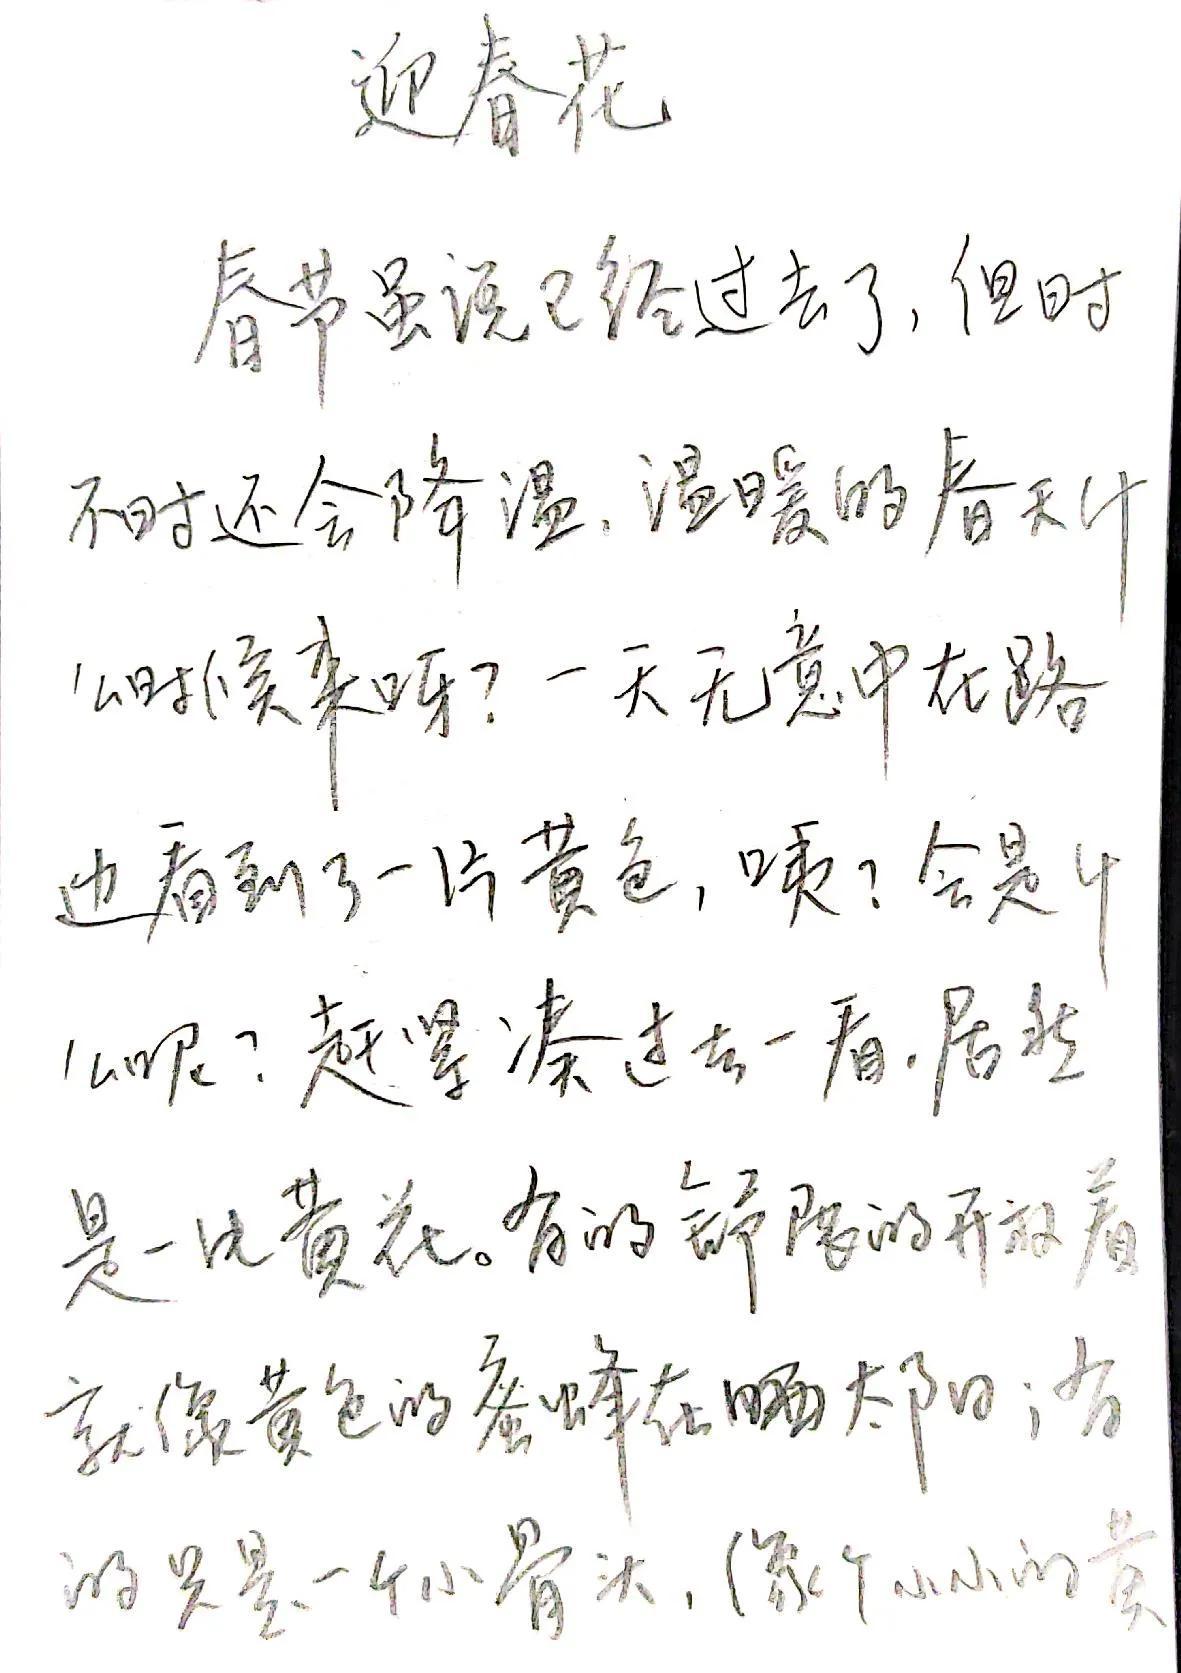 迎春花
春节虽说已经过去了，但时
不时还会降温，温暖的春天什
么时候来呀？一天无意中在路
边看到了一片黄色，咦？会是什
么呢？赶紧凑过去一看，居然
是一比黄花。有的舒服的开放着
就像黄色的蜜蜂在晒太阳；有
的只是一个小骨头，像个小小的黄